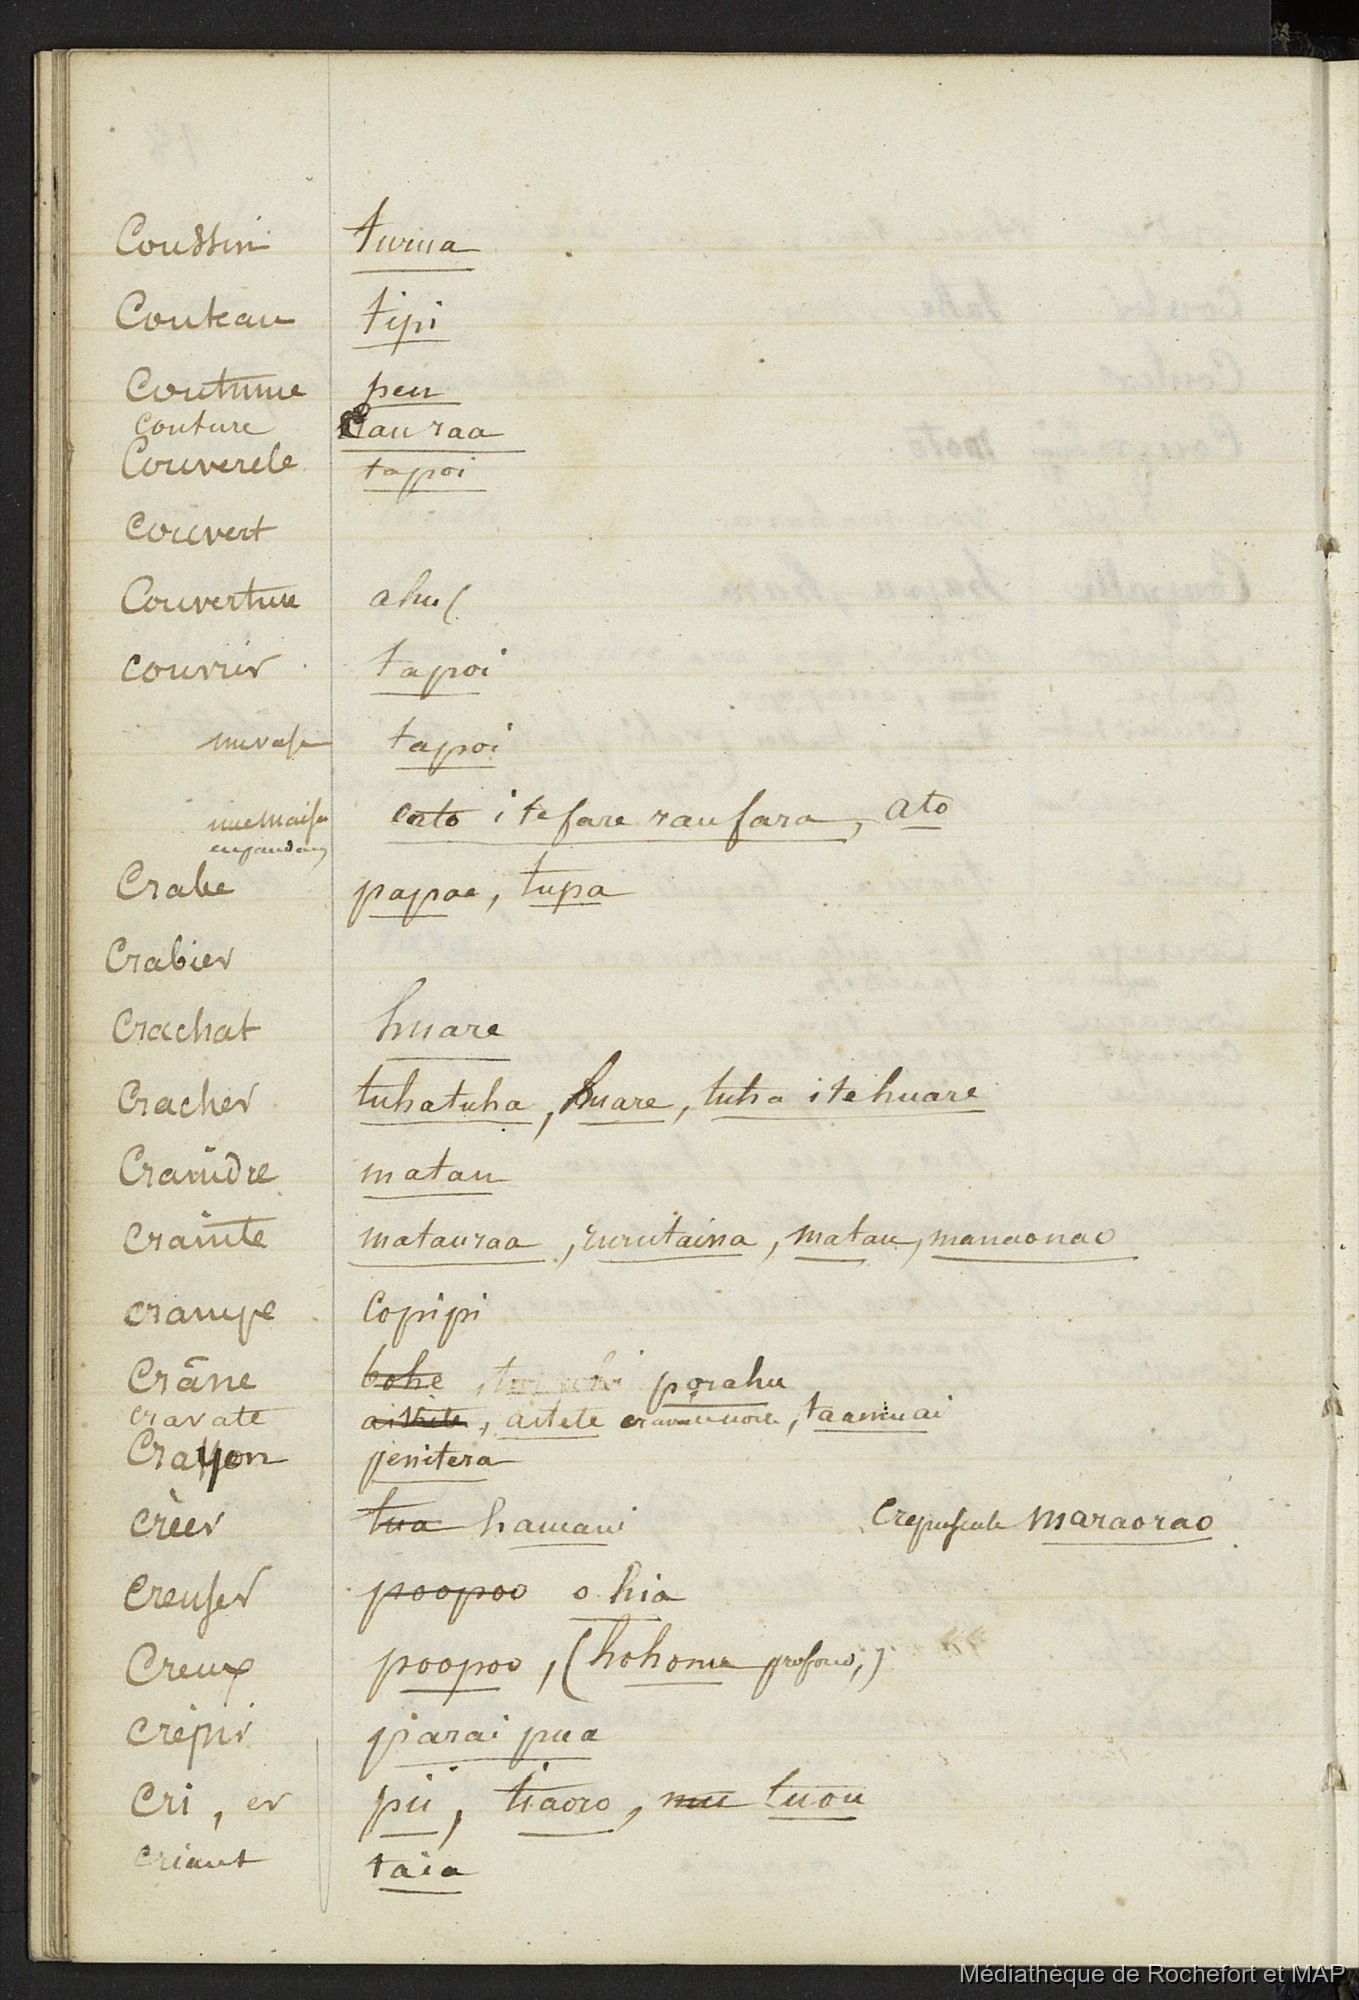 Coussin turua
Couteau tipi
Coutume peu
couture auraa
Couvercle tapoi
Couvert
Couverture ahu (
couvrir tapoi
un vase tapoi
une maison en pandanus ato i te fare raufara, ato
Crabe papae, tupa
Crabier
Crachat huare
Cracher tuhatuha, huare, tuha i te huare
Craindre matau
crainte matauraa, rurutaina, matau, manaonao
crampe copipi
Crâne bohe, porahu
cravate aitete, taamuai
Crayon penitera
créer tua hamani Crepuscule maraorao
Creuser poopoo ohia
Creux poopoo, (hohonu profond,)
crépir parai pua
Cri, er pii, tiaoro, mu tuou
criant taia
Médiathèque de Rochefort et MAP